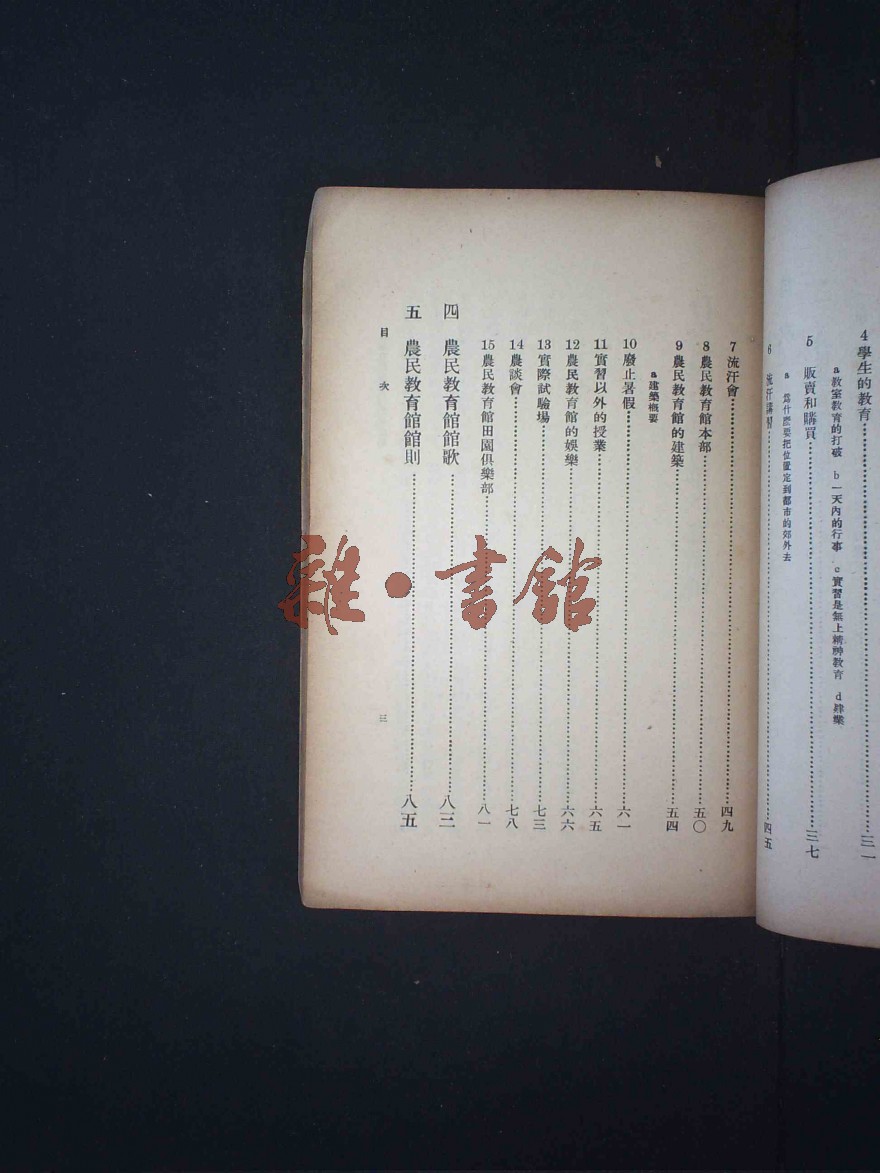 4 學生的教育……三一
a 教室教育的打破 b 一天內的行事 c 實習是無上精神教育 d 肄業
5 販賣和購買……三七
a 爲什麼要把位置定到都市的郊外去
6 流汗講習……四五
7 流汗會……四九
8 農民教育館本部……五〇
9 農民教育館的建築……五四
a 建築概要
10 廢止暑假……六一
11 實習以外的授業……六五
12 農民教育館的娛樂……六六
13 實際試驗場……七三
14 農談會……七八
15 農民教育館田園俱樂部……八一
四 農民教育館館歌……八三
五 農民教育館館則……八五
目次
三
雜·書館